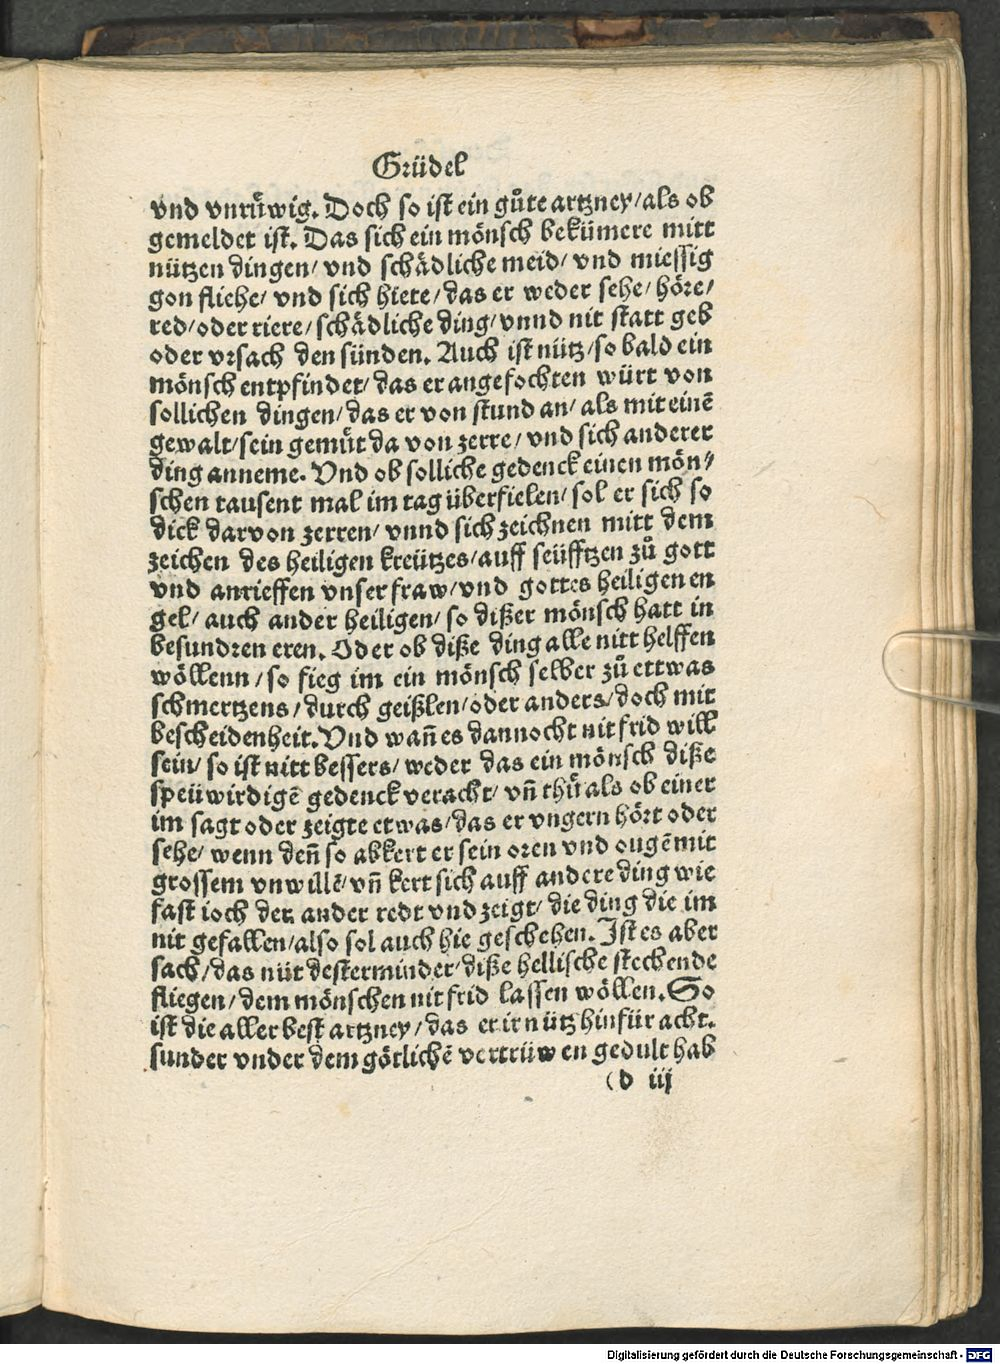 Grüdel
vnd vnrüwig. Doch so ist ein gůte artzney/als ob
gemeldet ist. Das sich ein mönsch bekümere mitt
nützen dingen/ vnd schädliche meid/ vnd miessig
gon fliehe/ vnd sich hiete/das er weder sehe/höre/
red/oder riere/schädliche ding/vnnd nit statt geb
oder vrsach den sünden. Auch ist nütz/so bald ein
mönsch entpfindet/das er angefochten würt von
sollichen dingen/das er von stund an/ als mit einē
gewalt/sein gemüt da von zerre/vnd sich anderer
ding anneme. Vnd ob solliche gedenck einen mön⸗
schen tausent mal im tag überfielen/sol er sich so
dick darvon zerren/ vnnd sich zeichnen mitt dem
zeichen des heiligen kreützes/auff seüfftzen zů gott
vnd anrieffen vnser fraw/vnd gottes heiligen en
gel/ auch ander heiligen/so dißer mönsch hatt in
besundren eren. Oder ob diße ding alle nitt helffen
wöllenn/so fieg im ein mönsch selber zů ettwas
schmertzens/durch geißlen/oder anders/doch mit
bescheidenheit. Vnd wañ es dannocht nit frid will
sein/ so ist nitt bessers/ weder das ein mönsch diße
speüwirdigē gedenck veracht/ vñ thů als ob einer
im sagt oder zeigte etwas/das er vngern hört oder
sehe/ wenn deñ so abkert er sein oren vnd ougē mit
grossem vnwillē/vñ kert sich auff andere ding wie
fast ioch der ander redt vnd zeigt/ die ding die im
nit gefallen/also sol auch hie geschehen. Ist es aber
sach/das nüt desterminder/diße hellische stechende
fliegen/dem mönschen nit frid lassen wöllen. So
ist die aller best artzney/das er ir nütz hinfür acht.
sunder vnder dem götlichē vertrüwen gedult hab
(d iij
Digitalisierung gefördert durch die Deutsche Forschungsgemeinschaft - DFG